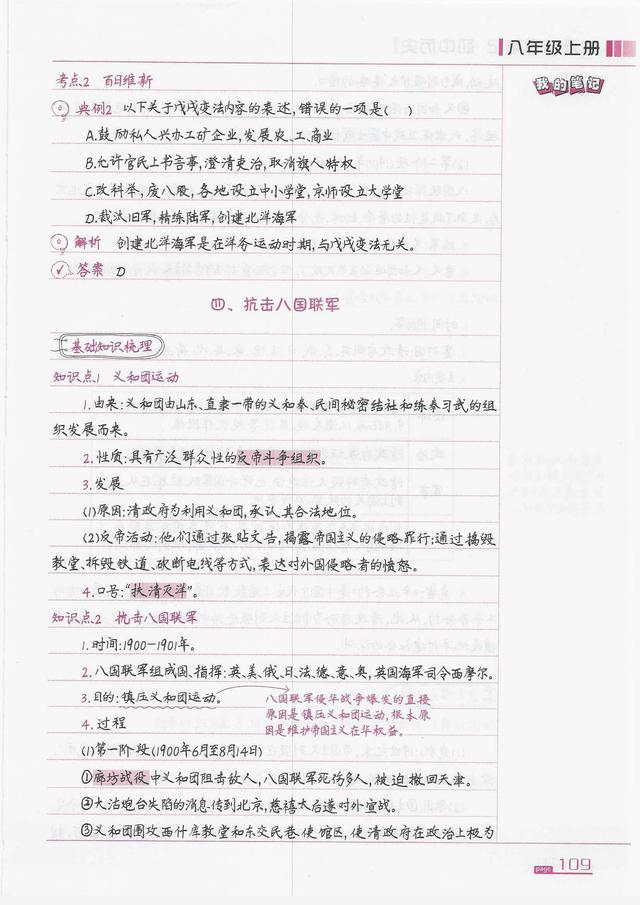 八年级上册
我的笔记
考点2 百日维新
典例2 以下关于戊戌变法内容的表述,错误的一项是( )
A.鼓励私人兴办工矿企业,发展农、工、商业
B.允许官民上书言事,澄清吏治,取消旗人特权
C.改科举,废八股,各地设立中小学堂,京师设立大学堂
D.裁汰旧军,精练陆军,创建北洋海军
解析 创建北洋海军是在洋务运动时期,与戊戌变法无关。
答案 D
四、抗击八国联军
基础知识梳理
知识点1 义和团运动
1.由来:义和团由山东、直隶一带的义和拳、民间秘密结社和练拳习武的组
织发展而来。
2.性质:具有广泛群众性的反帝斗争组织。
3.发展
(1)原因:清政府为利用义和团,承认其合法地位。
(2)反帝活动:他们通过张贴文告,揭露帝国主义的侵略罪行;通过捣毁
教堂、拆毁铁道、砍断电线等方式,表达对外国侵略者的愤怒。
4.口号:“扶清灭洋”。
知识点2 抗击八国联军
1.时间:1900—1901年。
2.八国联军组成国、指挥:英、美、俄、日、法、德、意、奥,英国海军司令西摩尔。
3.目的:镇压义和团运动。
八国联军侵华战争爆发的直接
原因是镇压义和团运动,根本原
因是维护帝国主义在华权益。
4.过程
(1)第一阶段(1900年6月至8月14日)
①廊坊战役中义和团阻击敌人,八国联军死伤多人,被迫撤回天津。
②大沽炮台失陷的消息传到北京,慈禧太后遂对外宣战。
③义和团围攻西什库教堂和东交民巷使馆区,使清政府在政治上极为
page 109